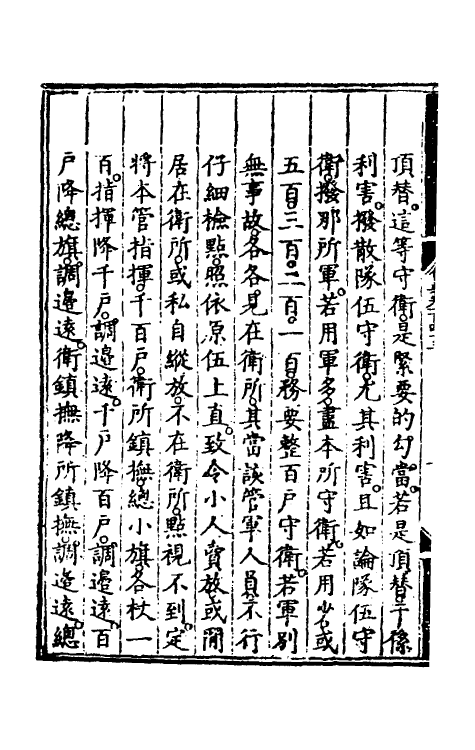 頂替。這等守衛。是緊要的勾當。若是頂替。干係
利害。撥散隊伍守衛。尤其利害。且如論隊伍守
衛。撥那所軍。若用軍多。盡本所守衛。若用少。或
五百。三百。二百。一百。務要整百戶守衛。若軍別
無事故。各各見在衛所。其當該管軍人員。不行
仔細檢點。照依原伍上直。致令小人賣放。或閒
居在衛所。或私自縱放。不在衛所。點視不到。定
將本管指揮。千百戶。衛所鎮撫。總小旗。各杖一
百。指揮降千戶。調邊遠。千戶降百戶。調邊遠。百
戶降總旗。調邊遠。衛鎮撫降所鎮撫。調邊遠。總